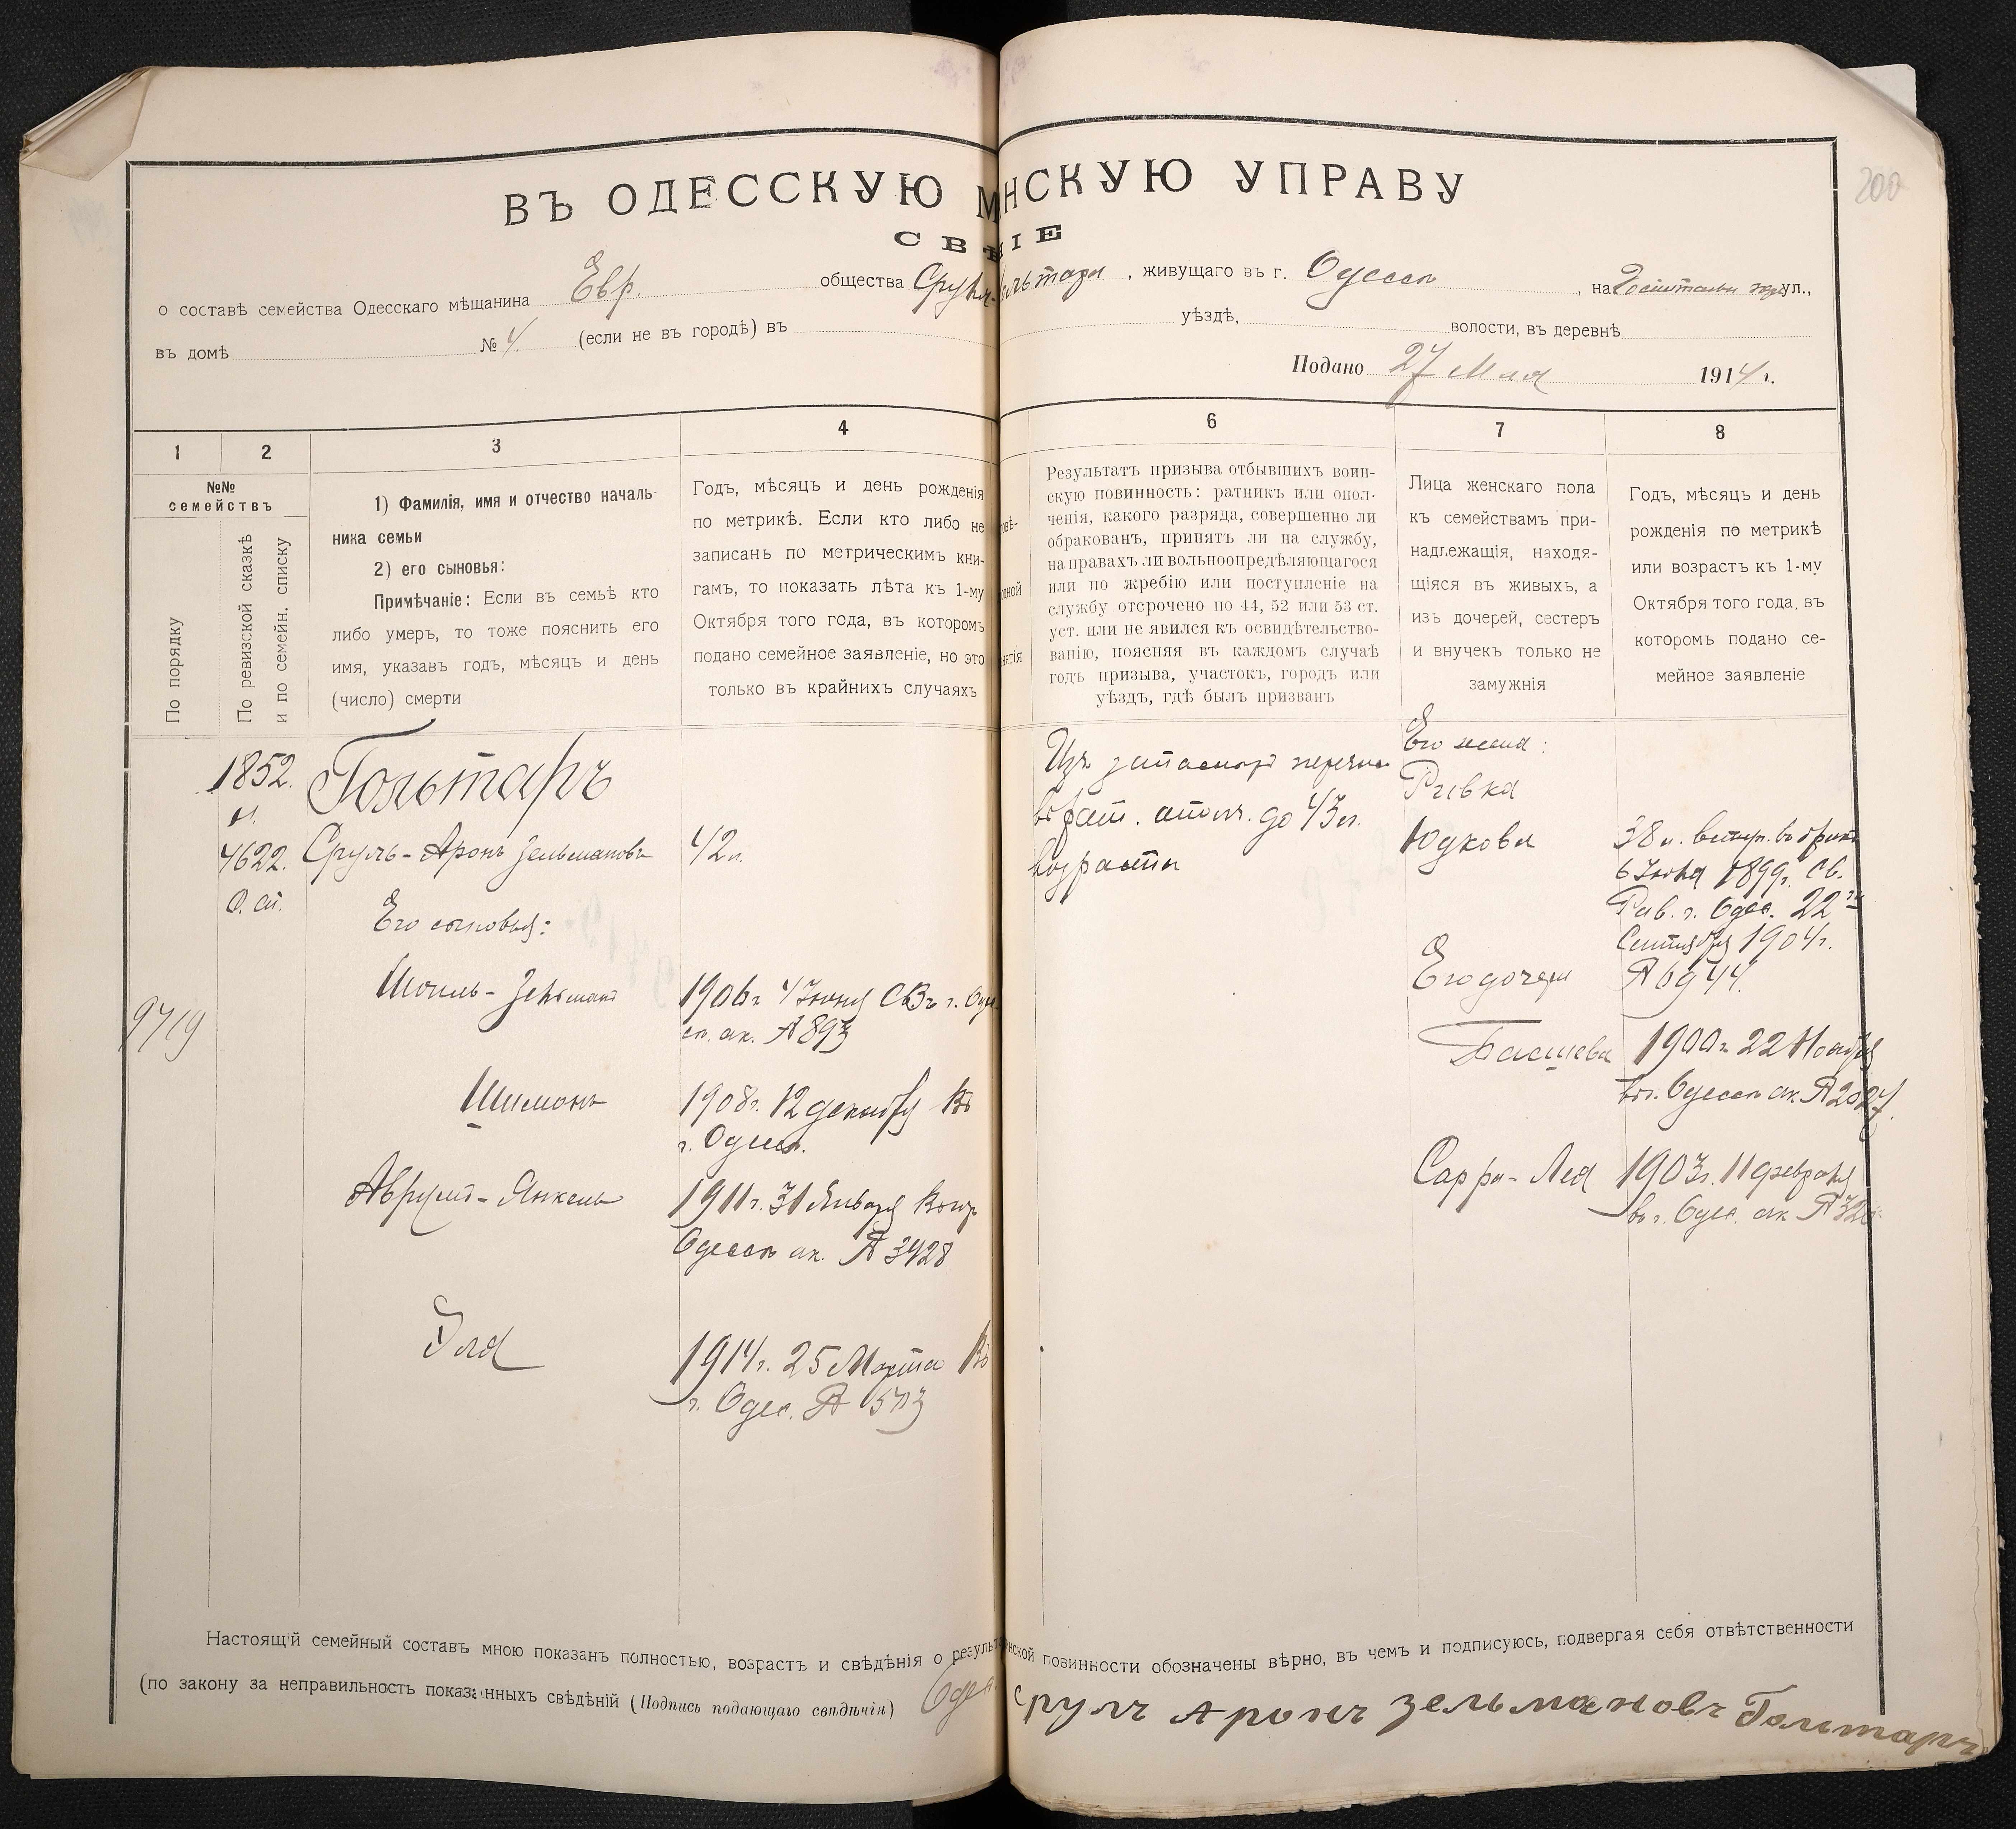 200
ВЪ ОДЕССКУЮ М НСКУЮ УПРАВУ
СВѢ НІЕ
о составѣ семейства Одесскаго мѣщанина Евр. общества , живущаго въ г. Одессѣ , на ул.,
въ домѣ № 4. (если не въ городѣ) въ уѣздѣ, волости, въ деревнѣ
Подано 27 Мая 1914 г.
1 2 3 4 6 7 8
№№ семействъ
По порядку
По ревизской сказкѣ
и по семейн. списку
1) Фамилія, имя и отчество началь-
ника семьи
2) его сыновья:
Примѣчаніе: Если въ семьѣ кто
либо умеръ, то тоже пояснить его
имя, указавъ годъ, мѣсяцъ и день
(число) смерти
Годъ, мѣсяцъ и день рожденія
по метрикѣ. Если кто либо не
записанъ по метрическимъ кни-
гамъ, то показать лѣта къ 1-му
Октября того года, въ которомъ
подано семейное заявленіе, но это
только въ крайнихъ случаяхъ
Результатъ призыва отбывшихъ воин-
скую повинность: ратникъ или опол-
ченія, какого разряда, совершенно ли
обракованъ, принятъ ли на службу,
на правахъ ли вольноопредѣляющагося
или по жребію или поступленіе на
службу отсрочено по 44, 52 или 53 ст.
уст. или не явился къ освидѣтельство-
ванію, поясняя въ каждомъ случаѣ
годъ призыва, участокъ, городъ или
уѣздъ, гдѣ былъ призванъ
Лица женскаго пола
къ семействамъ при-
надлежащія, находя-
щіяся въ живыхъ, а
изъ дочерей, сестеръ
и внучекъ только не
замужнія
Годъ, мѣсяцъ и день
рожденія по метрикѣ
или возрастъ къ 1-му
Октября того года, въ
которомъ подано се-
мейное заявленіе
1852.
4622.
9719
Гольтаръ
Сруль-Аронъ Зельмановъ 42 л.
Его сыновья:
Шоиль-Зельманъ 1906 г. 4 Іюня
ак. № 893
Шимонъ 1908 г. 12 декабря въ
г. Одессѣ.
Аврумъ-Янкель 1911 г. 31 Января
Одессѣ ак. № 3428
Эля 1914 г. 25 Марта въ
г. Одес. №
Изъ
въ рат. ополч. до 43 л.
возраста
Его жена:
Ривка
Юдкова 38 л. вступ. въ бракъ
1899 г. св.
Рав. г. Одес. 22
Сентября 1904 г.
№ 6944.
Его дочери
Басшева 1900 г. 22 Ноября
въ г. Одессѣ ак. № 2027.
Сарра-Лея 1903 г. 11 февраля
въ г. Одес. ак. №
Настоящій семейный составъ мною показанъ полностью, возрастъ и свѣдѣнія о резуль инской повинности обозначены вѣрно, въ чемъ и подписуюсь, подвергая себя отвѣтственности
(по закону за неправильность показанныхъ свѣдѣній (Подпись подающаго свѣдѣнія) Сруль Аронъ Зельмановъ Гольтаръ